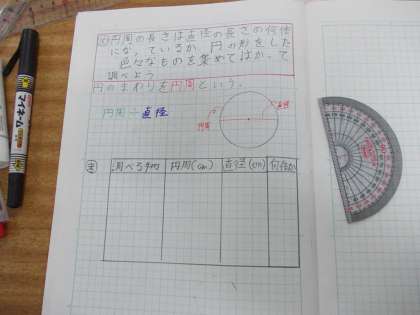 円周の長さは直径の長さの何倍
になっているか、円の形をした
色々なものを集めてはかって
調べよう
円のまわりを円周という。
円周÷直径
直径
円周
調べる物 円周(cm) 直径(cm) 何倍か